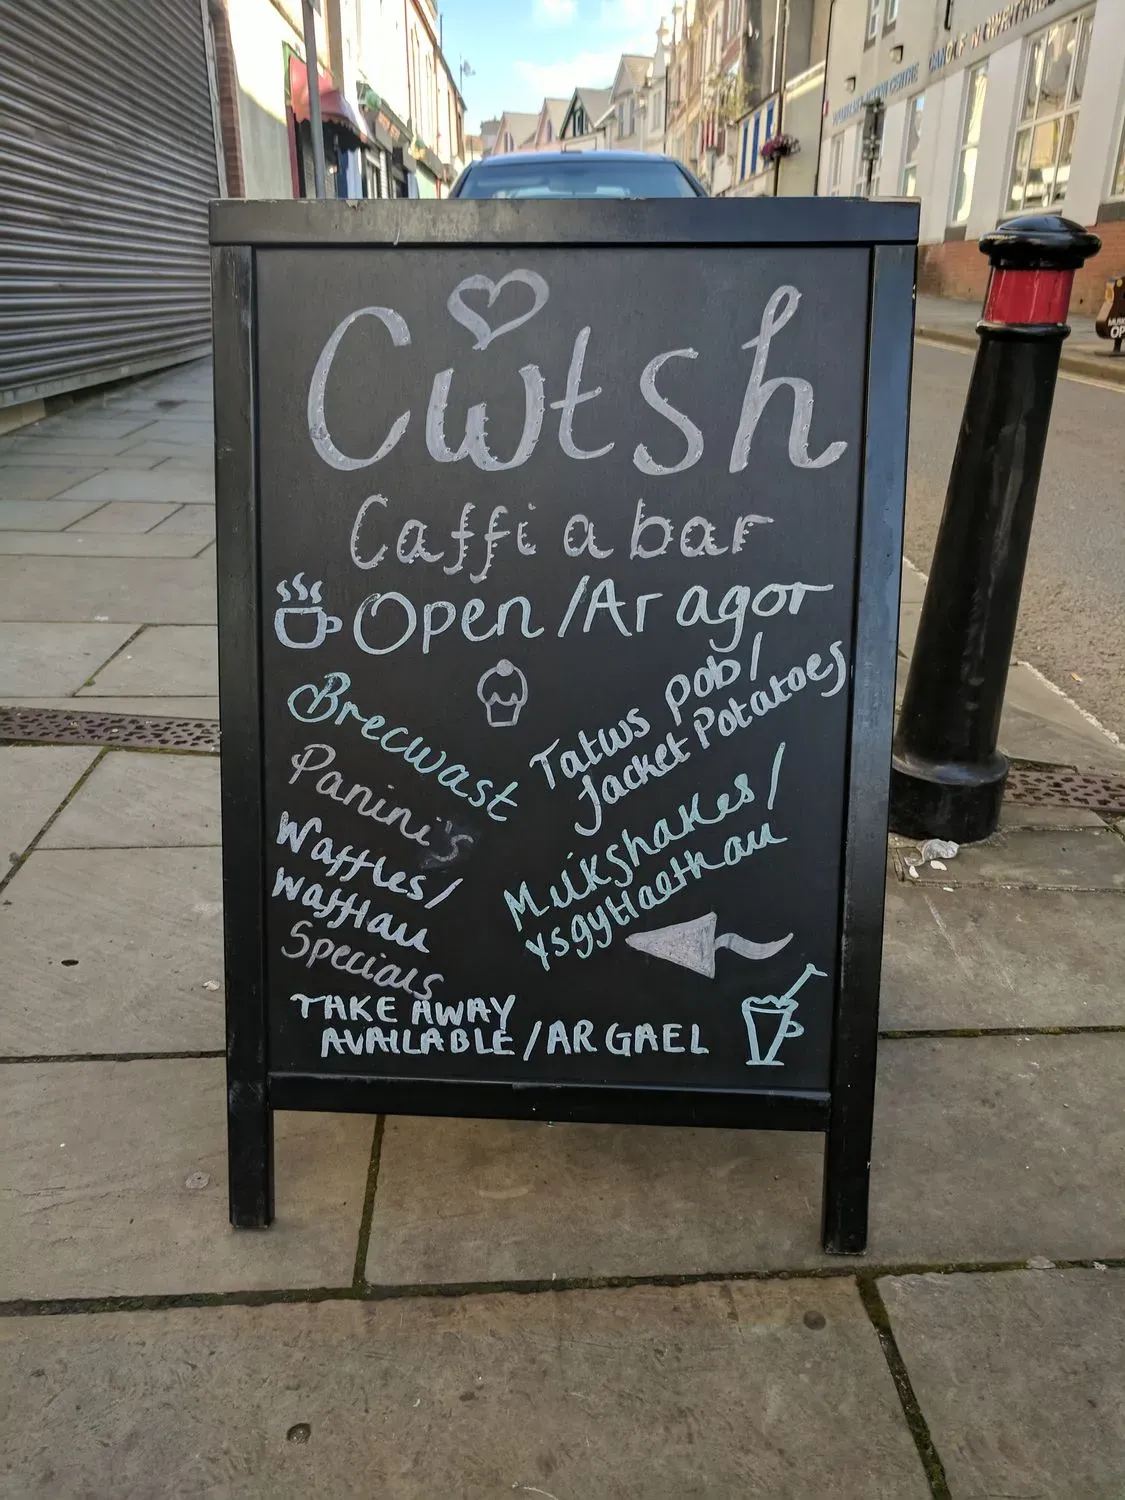 Cwtsh
Caffi a bar
Open / Ar agor
Brecwast
Panini's
Waffles /
Wafflau
Specials
Tatws pob /
Jacket Potatoes
Milkshakes /
Ysgytlaethau
TAKE AWAY
AVAILABLE / AR GAEL